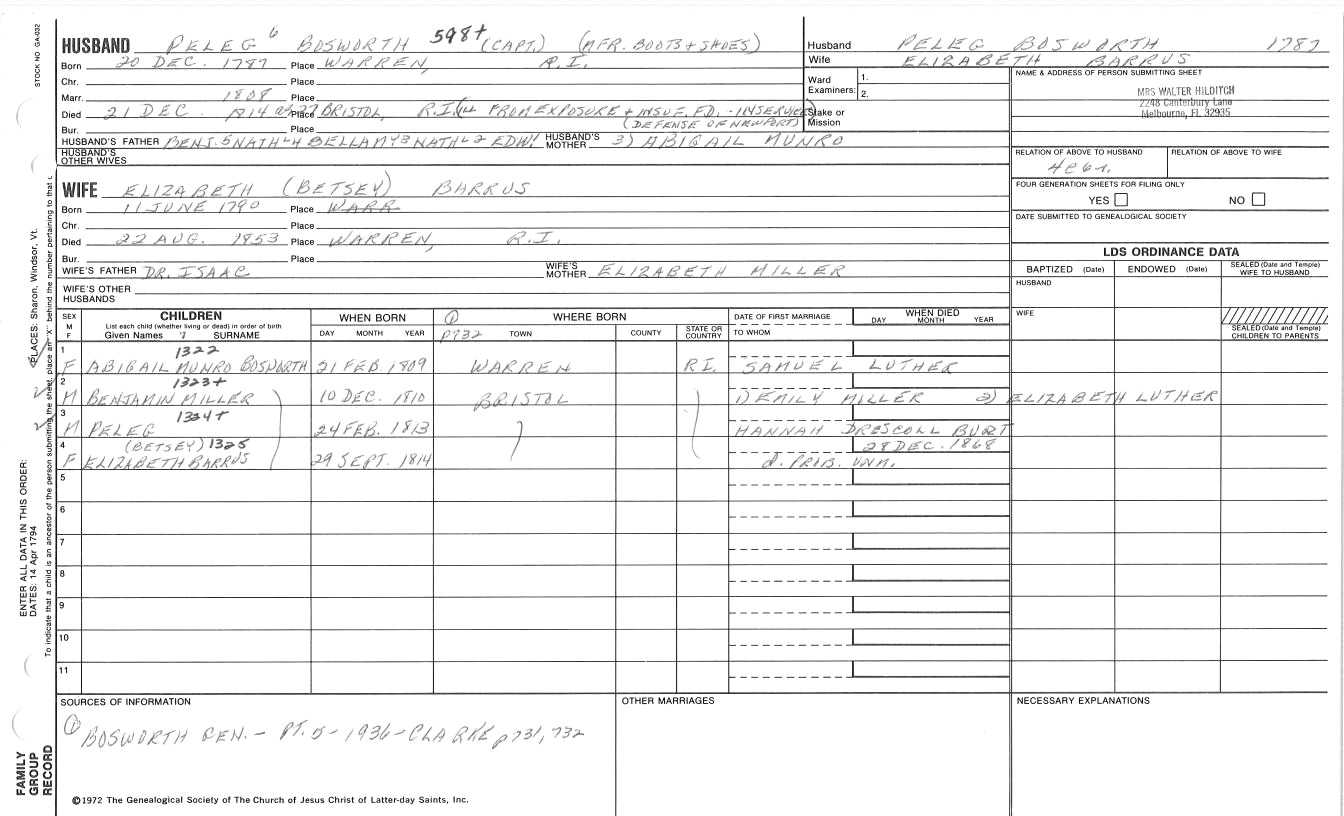 HUSBAND PELEG 6 BOSWORTH 598+ (CAPT.) (MFR. BOOTS + SHOES)
Born 20 DEC. 1787 Place WARREN, R.I.
Chr. Place
Marr. 1808 Place
Died 21 DEC. 1814 Place BRISTOL, R.I. FROM EXPOSURE + INSUF. FD. - INSERVICE
Bur. Place (DEFENSE OF NEWPORT)
HUSBAND'S FATHER BENJ. 5 NATH L 4 BELLAMY 3 NATH L 2 EDW. 1 HUSBAND'S MOTHER 3) ABIGAIL MUNRO
HUSBAND'S OTHER WIVES
Husband PELEG BOSWORTH 1787
Wife ELIZABETH BARRUS
Ward Examiners: 1.
2.
Stake or Mission
NAME & ADDRESS OF PERSON SUBMITTING SHEET
MRS WALTER HILDITCH
2248 Canterbury Lane
Melbourne, FL 32935
RELATION OF ABOVE TO HUSBAND RELATION OF ABOVE TO WIFE
FOUR GENERATION SHEETS FOR FILING ONLY
YES NO
DATE SUBMITTED TO GENEALOGICAL SOCIETY
WIFE ELIZABETH (BETSEY) BARRUS
Born 11 JUNE 1790 Place WARR
Chr. Place
Died 22 AUG. 1853 Place WARREN, R.I.
Bur. Place
WIFE'S FATHER DR. ISAAC WIFE'S MOTHER ELIZABETH MILLER
WIFE'S OTHER HUSBANDS
LDS ORDINANCE DATA
BAPTIZED (Date) ENDOWED (Date) SEALED (Date and Temple) WIFE TO HUSBAND
HUSBAND
WIFE
SEALED (Date and Temple) CHILDREN TO PARENTS
SEX M F CHILDREN List each child (whether living or dead) in order of birth Given Names 7 SURNAME
WHEN BORN DAY MONTH YEAR
① p732 WHERE BORN TOWN COUNTY STATE OR COUNTRY
DATE OF FIRST MARRIAGE TO WHOM
WHEN DIED DAY MONTH YEAR
1 1322
F ABIGAIL MUNRO BOSWORTH 21 FEB 1809 WARREN R.I. SAMUEL LUTHER
2 1323+
M BENJAMIN MILLER 10 DEC. 1810 BRISTOL 1) EMILY MILLER 2) ELIZABETH LUTHER
3 1324+
M PELEG 24 FEB. 1813 HANNAH DRESCOLL BURT
4 (BETSEY) 1325 28 DEC. 1868
F ELIZABETH BARRUS 29 SEPT. 1814 d. PROB. UNM.
5
6
7
8
9
10
11
SOURCES OF INFORMATION
① BOSWORTH GEN. - PT. 5 - 1936 - CLARKE p731, 732
OTHER MARRIAGES
NECESSARY EXPLANATIONS
©1972 The Genealogical Society of The Church of Jesus Christ of Latter-day Saints, Inc.
STOCK NO. GA-032
PLACES: Sharon, Windsor, Vt.
ENTER ALL DATA IN THIS ORDER:
DATES: 14 Apr 1794
To indicate that a child is an ancestor of the person submitting the sheet, place an "X" behind the number pertaining to that c
FAMILY GROUP RECORD